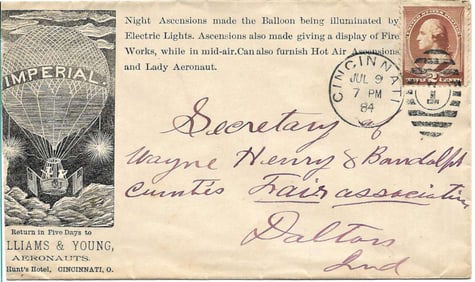 Night Ascensions made the Balloon being illuminated by
Electric Lights. Ascensions also made giving a display of Fire
Works, while in mid-air. Can also furnish Hot Air Ascensions
and Lady Aeronaut.
IMPERIAL.
CINCINNATI
JUL 9
7 PM
84
Secretary of
Wayne Henry & Randolph
Counties Fair association
Dalton
Ind
Return in Five Days to
LLIAMS & YOUNG,
AERONAUTS.
Hunt's Hotel, CINCINNATI, O.